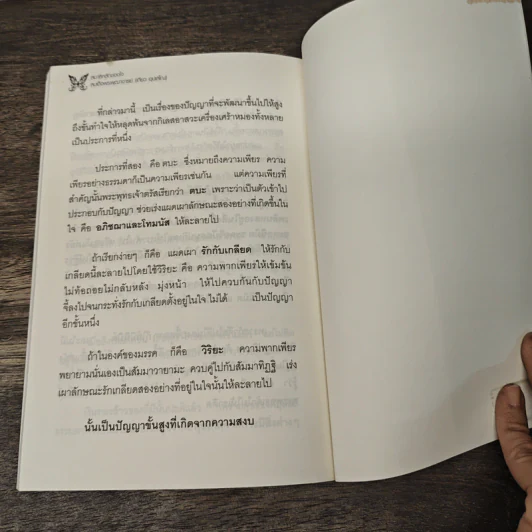 ที่กล่าวมานี้ เป็นเรื่องของปัญญาที่จะพัฒนาขึ้นไปให้สูง
ถึงขั้นทำใจให้หลุดพ้นจากกิเลสอาสวะเครื่องเศร้าหมองทั้งหลาย
เป็นประการที่หนึ่ง
ประการที่สอง คือ ตบะ ซึ่งหมายถึงความเพียร ความ
เพียรอย่างธรรมดาก็เป็นความเพียรเช่นกัน แต่ความเพียรที่
สำคัญนั้นพระพุทธเจ้าตรัสเรียกว่า ตบะ เพราะว่าเป็นตัวเข้าไป
ประกอบกับปัญญา ช่วยเร่งแผดเผาลักษณะสองอย่างที่เกิดขึ้นใน
ใจ คือ อภิชฌาและโทมนัส ให้ละลายไป
ถ้าเรียกง่ายๆ ก็คือ แผดเผา รักกับเกลียด ให้รักกับ
เกลียดนี้ละลายไปโดยใช้วิริยะ คือ ความพากเพียรให้เข้มข้น
ไม่ท้อถอยไม่กลับหลัง มุ่งหน้า ให้ไปควบกันกับปัญญา
จี้ลงไปจนกระทั่งรักกับเกลียดตั้งอยู่ในใจไม่ได้ เป็นปัญญา
อีกขั้นหนึ่ง
ถ้าในองค์ของมรรค ก็คือ วิริยะ ความพากเพียร
พยายามนั่นเองเป็นสัมมาวายามะ ควบคู่ไปกับสัมมาทิฏฐิ เร่ง
เผาลักษณะรักเกลียดสองอย่างที่อยู่ในใจนั้นให้ละลายไป
นั้นเป็นปัญญาขั้นสูงที่เกิดจากความสงบ